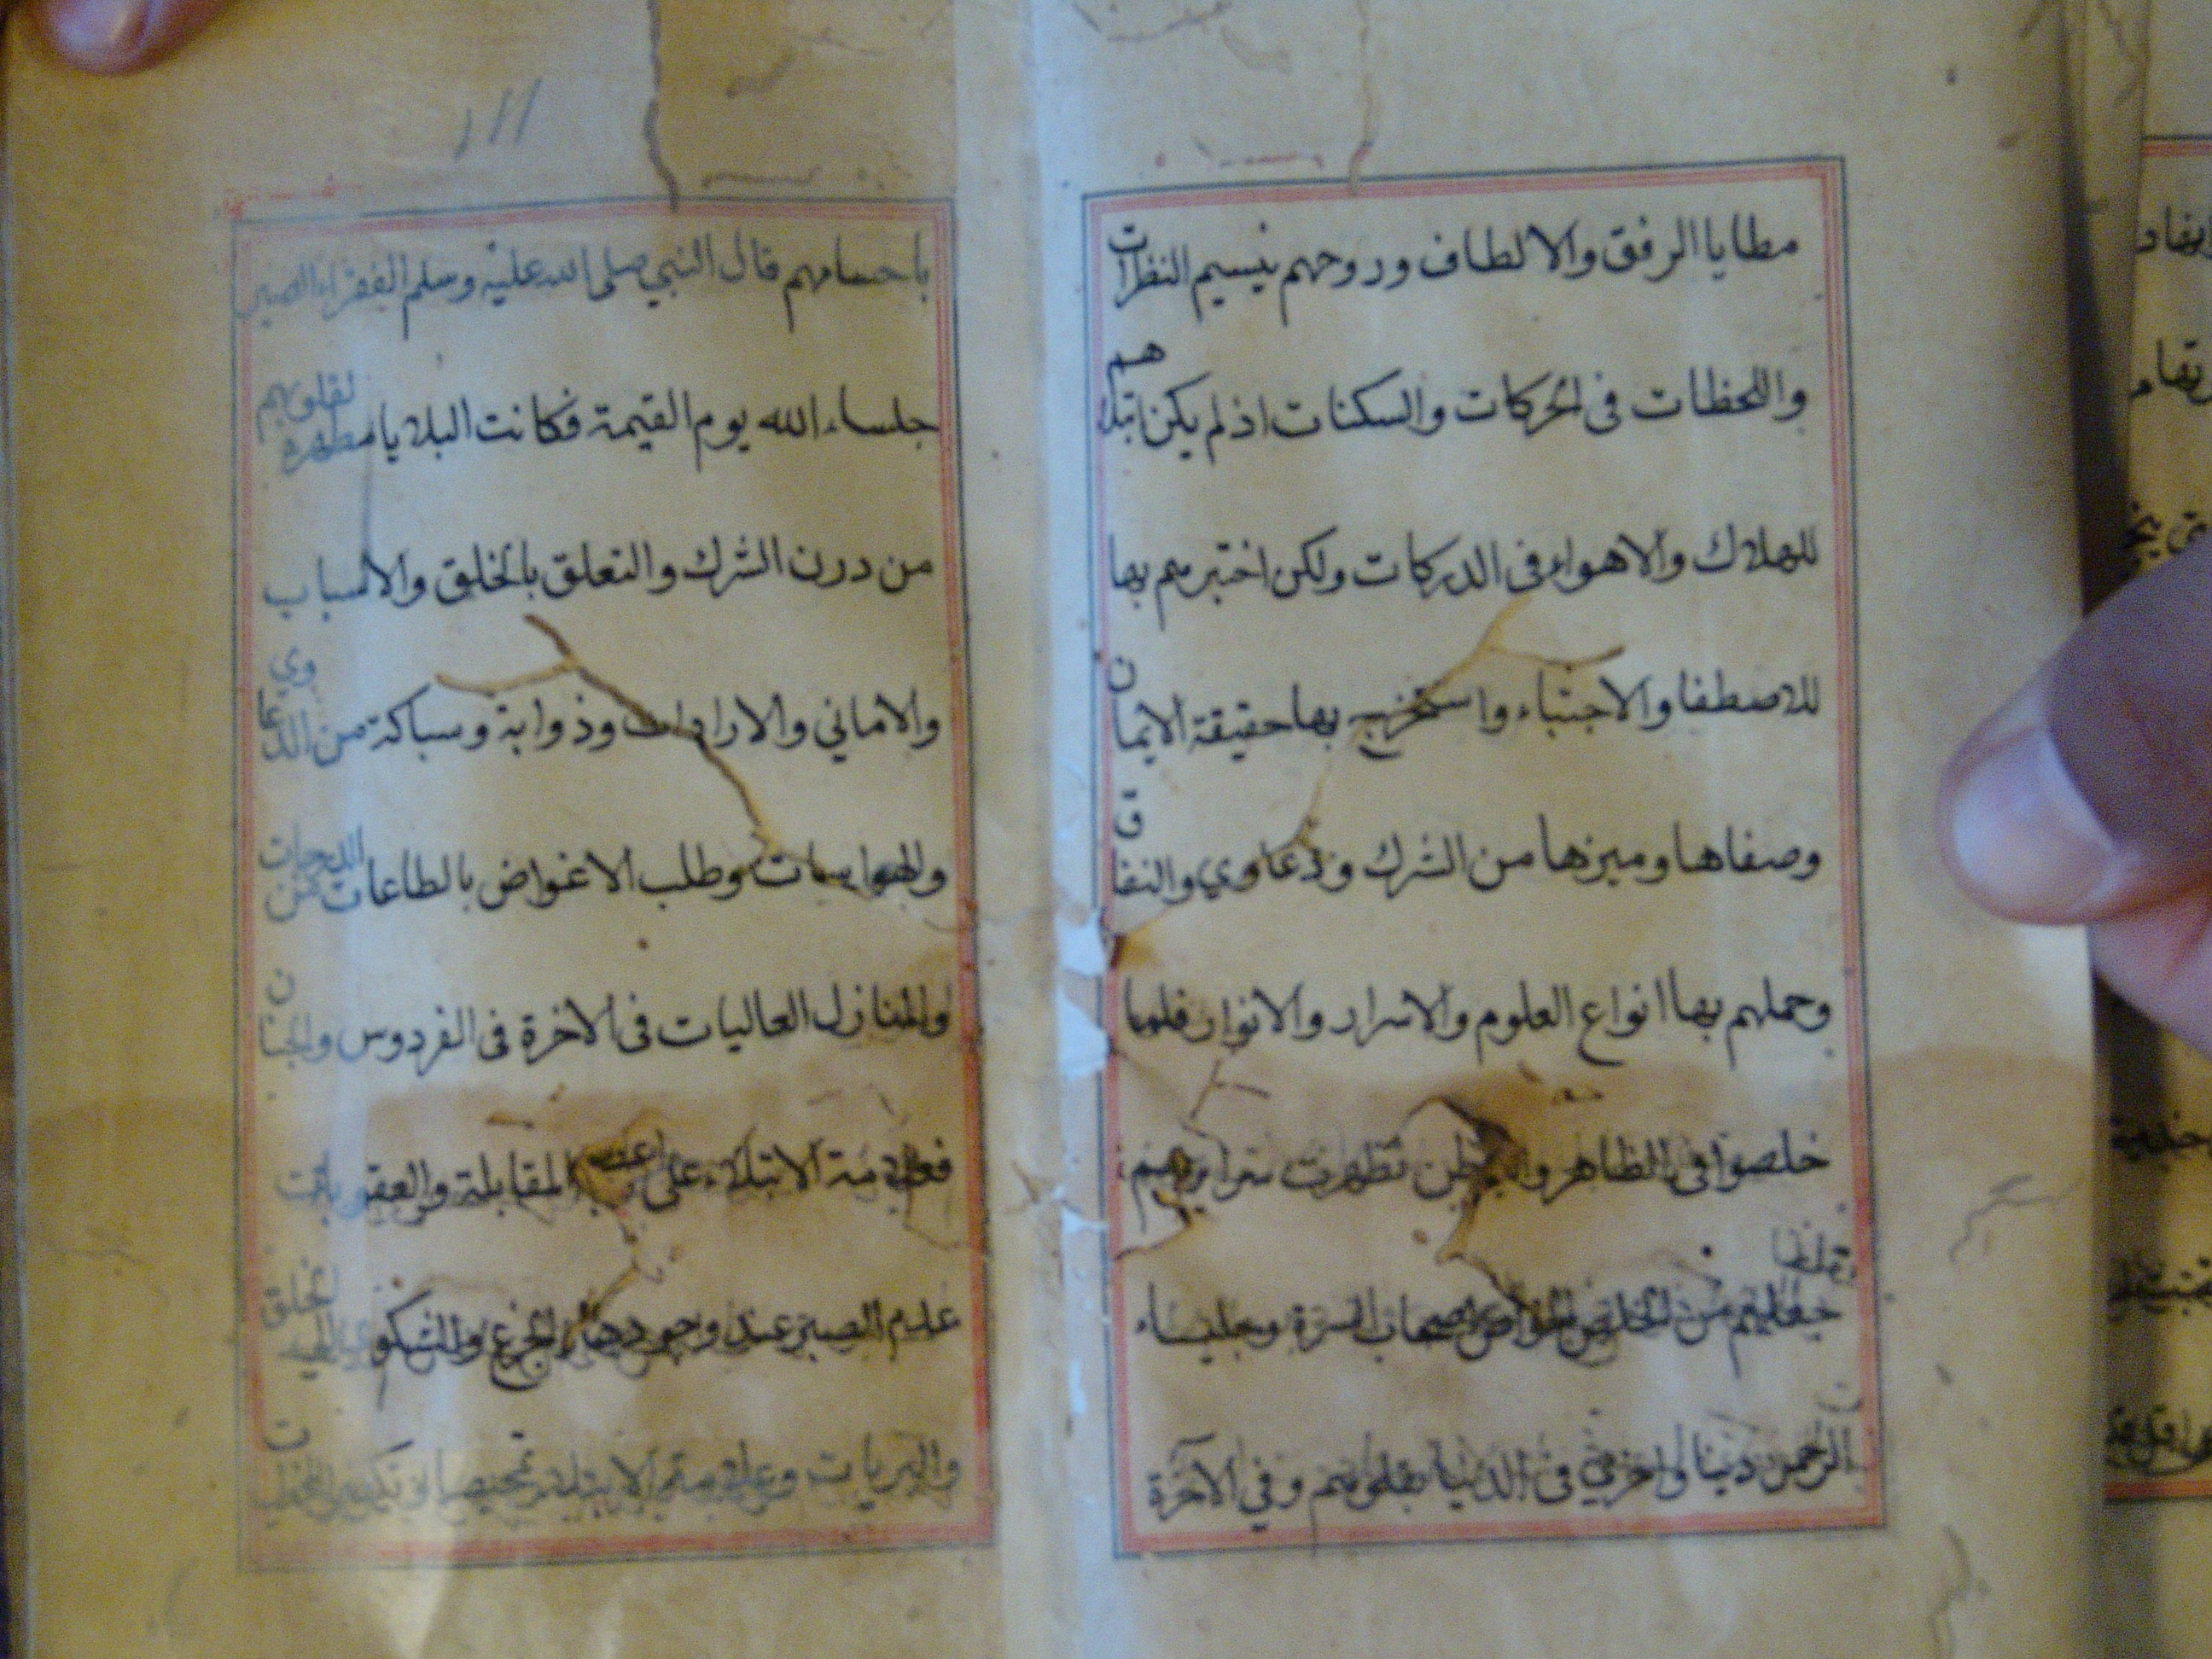 مطايا الرفق والالطاف وروحهم بنسيم النظرات
واللحظات فى الحركات والسكنات اذ لم يكن ابتلاهم
للهلاك والاهواء فى الدركات ولكن اختبرهم بها
للاصطفا والاجتباء واستخرج بها حقيقة الايمان
وصفاها وميزها من الشرك ودعاوي والنفاق
وحملهم بها انواع العلوم والاسرار والانوار فلما
خلصوا فى الظاهر والباطن تطهرت سرايرهم
جعلهم من الخلص الخواص اصحاب السرة وجلساء
الرحمن دنيا واخرى فى الدنيا بقلوبهم وفي الآخرة
١١١
باجسامهم قال النبي صلى الله عليه وسلم الفقراء الصبر
جلساء الله يوم القيمة فكانت البلايا مطهرة لقلوبهم
من درن الشرك والتعلق بالخلق والاسباب
والاماني والارادات وذوابة وسباكة من الدعاوي
والهواسات وطلب الاغواض بالطاعات من الدرجات
والمنازل العاليات فى الاخرة فى الفردوس والجنان
فعلامة الابتلاء على المقابلة والعقوبات
علام الصبر عند وجودها والجزع والشكو الخلق
والبريات وعلامة الابتلاء تمحيصا وتكفيرا